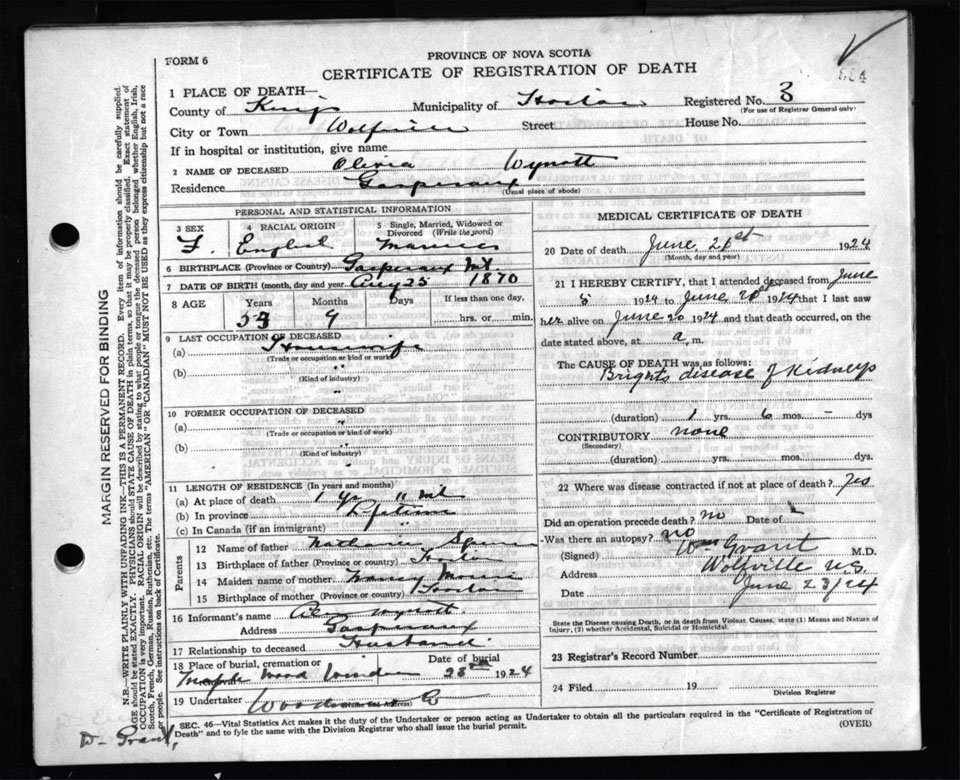 FORM 6
PROVINCE OF NOVA SCOTIA
CERTIFICATE OF REGISTRATION OF DEATH
1 PLACE OF DEATH—
County of Kings Municipality of Horton Registered No. 3
(For use of Registrar General only)
City or Town Wolfville Street House No.
If in hospital or institution, give name
2 NAME OF DECEASED Olivia Wynott
Residence Gaspereaux (Usual place of abode)
PERSONAL AND STATISTICAL INFORMATION
3 SEX F. 4 RACIAL ORIGIN English 5 Single, Married, Widowed or Divorced (Write the word) Married
6 BIRTHPLACE (Province or Country) Gaspereaux Mt
7 DATE OF BIRTH (month, day and year) Aug 25 1870
8 AGE Years 53 Months 9 Days If less than one day, hrs. or min.
9 LAST OCCUPATION OF DECEASED
(a) Housewife
(Trade or occupation or kind or work)
(b) "
(Kind of industry)
"
10 FORMER OCCUPATION OF DECEASED
(a) "
(Trade or occupation or kind of work)
(b) "
(Kind of industry)
"
11 LENGTH OF RESIDENCE (In years and months)
(a) At place of death 1 yr 11 mt
(b) In province Lifetime
(c) In Canada (if an immigrant)
Parents
12 Name of father Nathaniel
13 Birthplace of father (Province or country)
14 Maiden name of mother Nancy
15 Birthplace of mother (Province or country) Horton
16 Informant's name Wynott
Address Gaspereaux
17 Relationship to deceased Husband
18 Place of burial, cremation or Date of burial
Maple Wood Windsor 23rd 1924
19 Undertaker Woodman Co
MEDICAL CERTIFICATE OF DEATH
20 Date of death June, 21st 1924
(Month, day and year)
21 I HEREBY CERTIFY, that I attended deceased from June
5 1924 to June 20th 1924 that I last saw
her alive on June 20 1924 and that death occurred, on
date stated above, at a m.
The CAUSE OF DEATH was as follows:
Brights disease of Kidneys
(duration) 1 yrs. 6 mos. - dys
CONTRIBUTORY none
(Secondary)
(duration) yrs. mos. dys.
22 Where was disease contracted if not at place of death? Yes
Did an operation precede death? no Date of -
Was there an autopsy? no
(Signed) Wm Grant M.D.
Address Wolfville N.S.
Date June 23/24
State the Disease Causing Death, or in death from Violent Causes, state (1) Means and Nature of
Injury, (2) whether Accidental, Suicidal or Homicidal.
23 Registrar's Record Number
24 Filed 19 Division Registrar
SEC. 46—Vital Statistics Act makes it the duty of the Undertaker or person acting as Undertaker to obtain all the particulars required in the "Certificate of Registration of
Death" and to fyle the same with the Division Registrar who shall issue the burial permit. (OVER)
MARGIN RESERVED FOR BINDING
N.B.—WRITE PLAINLY WITH UNFADING INK—THIS IS A PERMANENT RECORD. Every item of information should be carefully supplied.
AGE should be stated EXACTLY. PHYSICIANS should STATE CAUSE OF DEATH in plain terms, so that it may be properly classified. Exact statement of
OCCUPATION is very important. RACIAL ORIGIN will be described by stating to what people or tongue the deceased person belonged whether English, Irish,
Scotch, French, German, Russian, Ruthenian, etc. The terms "AMERICAN" OR "CANADIAN" MUST NOT BE USED as they express citizenship but not a race
or people. See instructions on back of Certificate.
Grant,